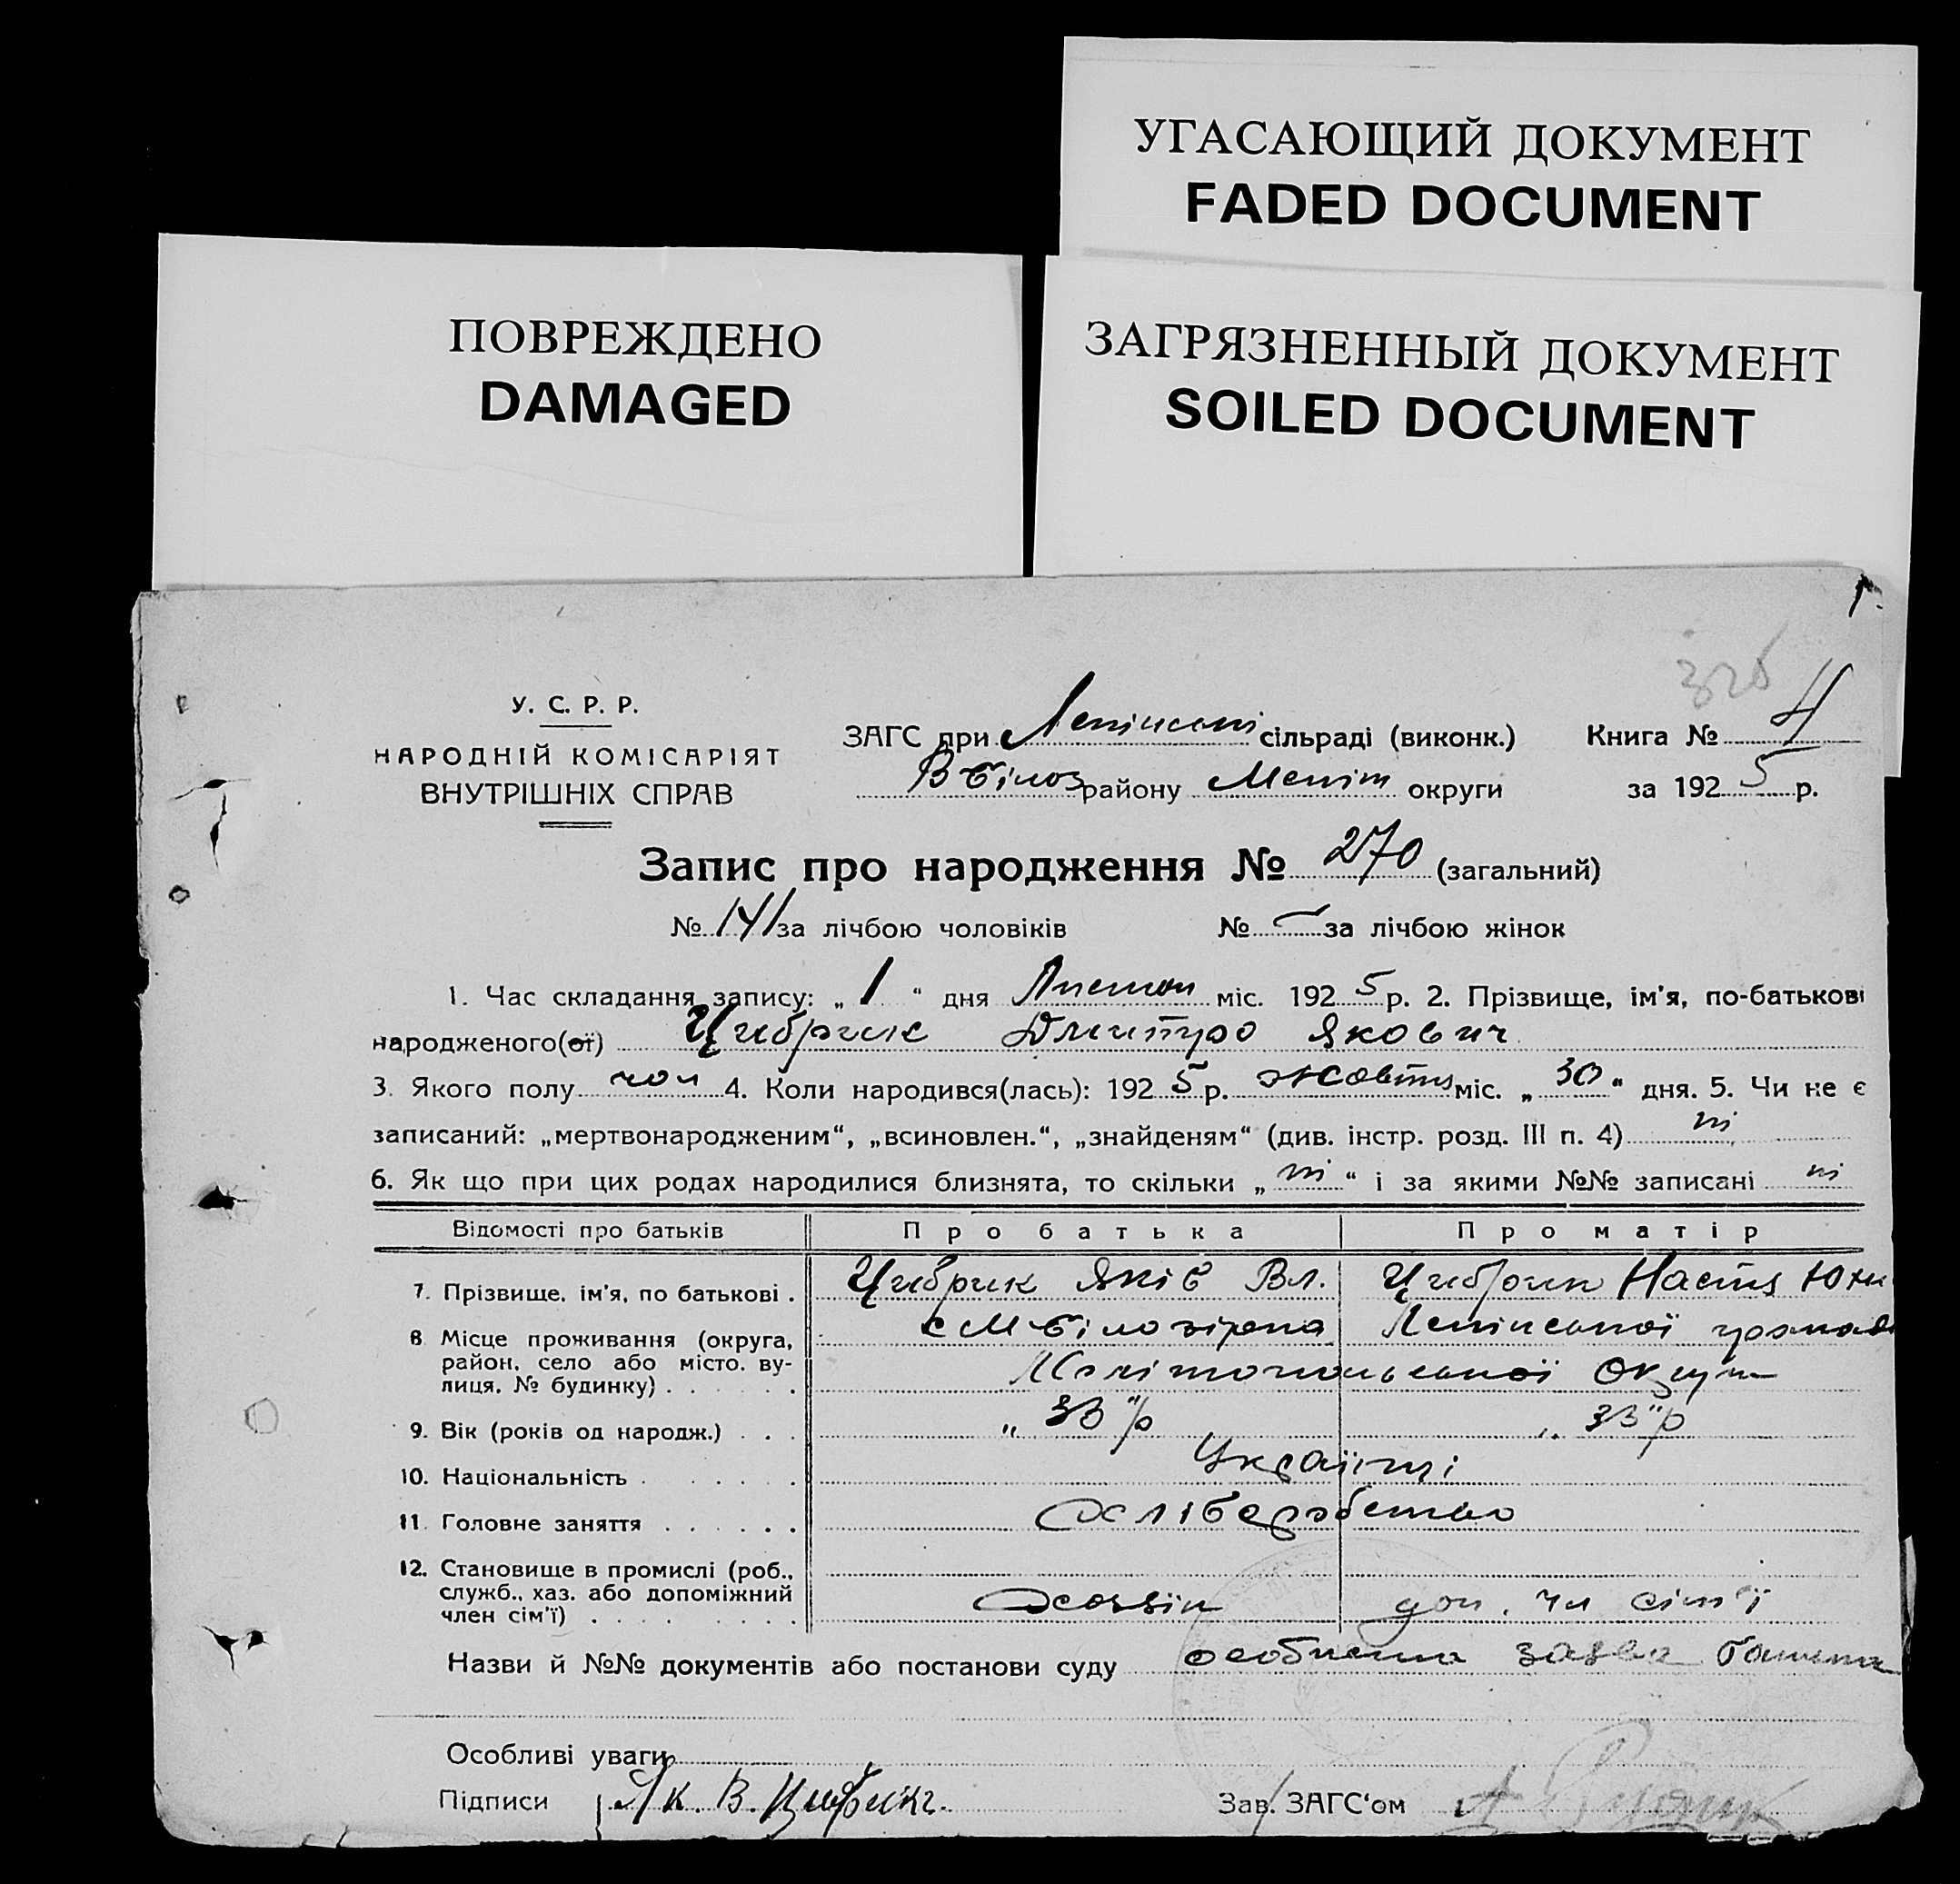 УГАСАЮЩИЙ ДОКУМЕНТ
FADED DOCUMENT
ПОВРЕЖДЕНО
DAMAGED
ЗАГРЯЗНЕННЫЙ ДОКУМЕНТ
SOILED DOCUMENT
326
У. С. Р. Р.
НАРОДНІЙ КОМІСАРІЯТ
ВНУТРІШНІХ СПРАВ
ЗАГС при Ленінській сільраді (виконк.) Книга №
В Білоз району Меліт округи за 1925 р.
Запис про народження № 270 (загальний)
№ 141 за лічбою чоловіків № — за лічбою жінок
1. Час складання запису: „ 1 “ дня Листоп міс. 1925 р. 2. Прізвище, ім'я, по-батькові
народженого(ої) Цибрик Дмитро Якович
3. Якого полу чол 4. Коли народився(лась): 1925 р. жовтня міс. „ 30 “ дня. 5. Чи не є
записаний: „мертвонародженим“, „всиновлен.“, „знайденям“ (див. інстр. розд. III п. 4) ні
6. Як що при цих родах народилися близнята, то скільки „ ні “ і за якими №№ записані ні
Відомості про батьків Про батька Про матір
7. Прізвище, ім'я, по батькові . Цибрик Яків Вл. Цибрик Настя Юхи
8 Місце проживання (округа, с М Білозірка Ленінської громади
район, село або місто, ву-
лиця, № будинку) . . . . . . Мелітопольської Округи
9. Вік (років од народж.) . . . „ 33 “ р „ 33 “ р
10. Національність . . . . . . Українці
11. Головне заняття . . . . . . Хліборобство
12. Становище в промислі (роб.,
служб., хаз. або допоміжний
член сім'ї) . . . . . . . . . Хазяїн доп. чл сім'ї
Назви й №№ документів або постанови суду особиста заява батька
Особливі уваги
Підписи Як. В. Цибрик Зав. ЗАГС‘ом